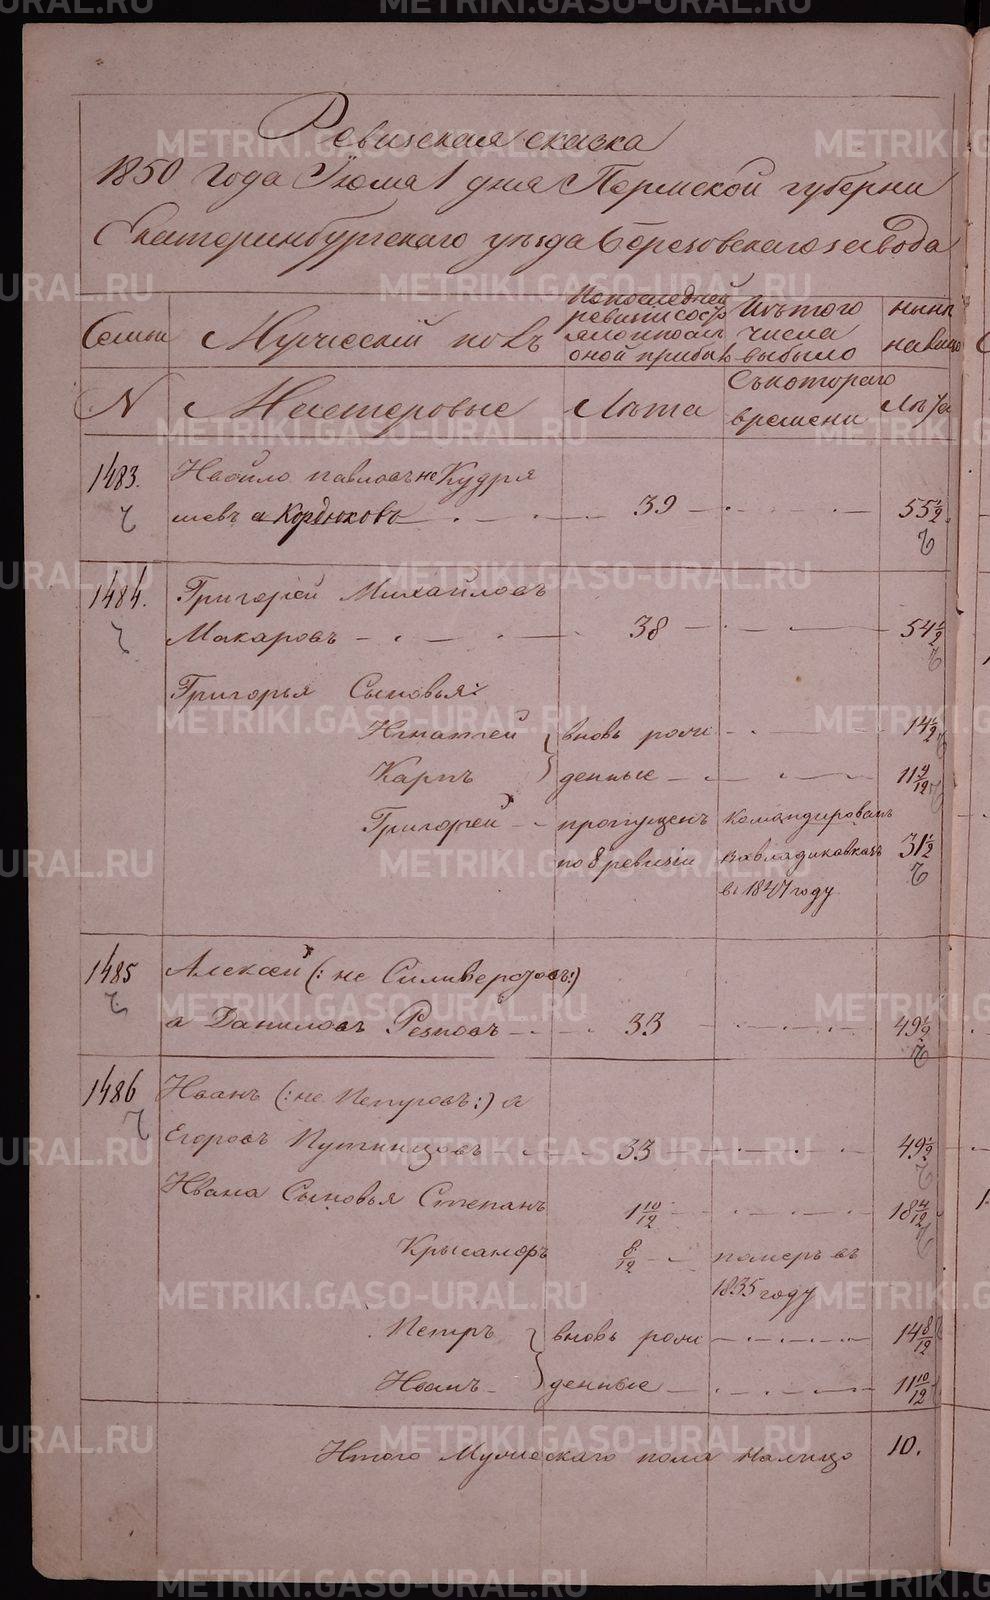 Ревизская сказка
1850 Года Июня 1 дня Пермской губерни
Екатеринбургскаго уезда Березовскаго завода
Семьи
Мужеский полъ
По последней ревизии состояло и после оной прибыло
Изъ того числа выбыло
ныне на лицо
N
Мастеровые
Лѣта
Съ котораго времени
Лѣта
1483.
Павловъ не Кудря
шевъ а Кордюковъ
39
55 1/2
1484.
Григорей Михайловъ
Макаровъ
38
54 1/2
Григорья Сыновья:
Игнатей
вновь рож
14 1/2
Карпъ
денные
11 4/12
Григорей
пропущенъ
командированъ
по 8 ревизіи
Вовладикавказъ
31 1/2
въ 1847 году
1485
Алексей (: не Силиверстовъ:)
а Даниловъ Резповъ
33
49 1/2
1486
Иванъ (: не Петровъ:) а
Егоровъ Путинцовъ
33
49 1/2
Ивана Сыновья Степанъ
1 10/12
18 4/12
Крысанфъ
8/12
померъ въ
1835 году
Петръ
вновь рож
14 8/12
Иванъ
денные
11 10/12
Итого Мужескаго пола Налицо
10.
METRIKI.GASO-URAL.RU